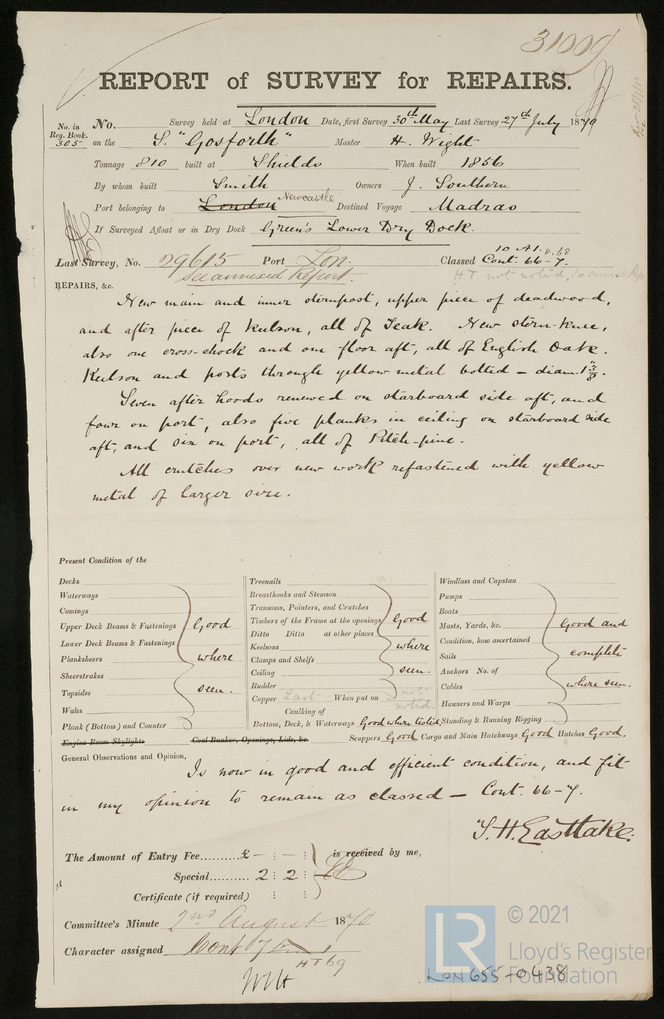 31009
REPORT of SURVEY for REPAIRS.
No. in Reg. Book. 305
No. Survey held at London Date, first Survey 30th May Last Survey 27th July 1870
on the S. "Gosforth" Master H. Wight
Tonnage 810 built at Shields When built 1856
By whom built Smith Owners J. Southern
Port belonging to London Newcastle Destined Voyage Madras
If Surveyed Afloat or in Dry Dock Green's Lower Dry Dock.
10 A1. 8.68
Last Survey, No. 29615 Port Lon. Classed Cont. 66-7.
See annexed Report. H.T. not noted, See annexed Rep
REPAIRS, &c.
New main and inner sternpost, upper piece of deadwood,
and after piece of keelson, all of Teak. New stern-knee,
also one cross-chock and one floor aft, all of English Oak.
Keelson and posts through yellow metal bolted - diam 1 3/8".
Seven after hoods renewed on starboard side aft, and
four on port, also five planks in ceiling on starboard side
aft, and six on port, all of Pitch-pine.
All crutches over new work refastened with yellow
metal of larger size.
Present Condition of the
Decks
Waterways
Comings
Upper Deck Beams & Fastenings
Lower Deck Beams & Fastenings
Planksheers
Sheerstrakes
Topsides
Wales
Plank (Bottom) and Counter
Good
where
seen.
Engine Room Skylights Coal Bunker, Openings, Lids, &c.
Treenails
Breasthooks and Stemson
Transoms, Pointers, and Crutches
Timbers of the Frame at the openings
Ditto Ditto at other places
Keelsons
Clamps and Shelfs
Ceiling
Rudder
Good
where
seen.
Copper When put on not
Caulking of noted.
Bottom, Deck, & Waterways Good where tested
Windlass and Capstan
Pumps
Boats
Masts, Yards, &c.
Condition, how ascertained
Sails
Anchors No. of
Cables
Hawsers and Warps
Standing & Running Rigging
Good and
complete
where seen.
Scuppers Good Cargo and Main Hatchways Good Hatches Good.
General Observations and Opinion,
Is now in good and efficient condition, and fit
in my opinion to remain as classed - Cont. 66-7.
T. H. Eastlake.
The Amount of Entry Fee......... £ - : - : is received by me,
Special......... 2 : 2 :
Certificate (if required) : :
Committee's Minute 2nd August 1870
Character assigned Cont 7
HT 69
© 2021
LR Lloyd's Register
Foundation
LON 655-0438